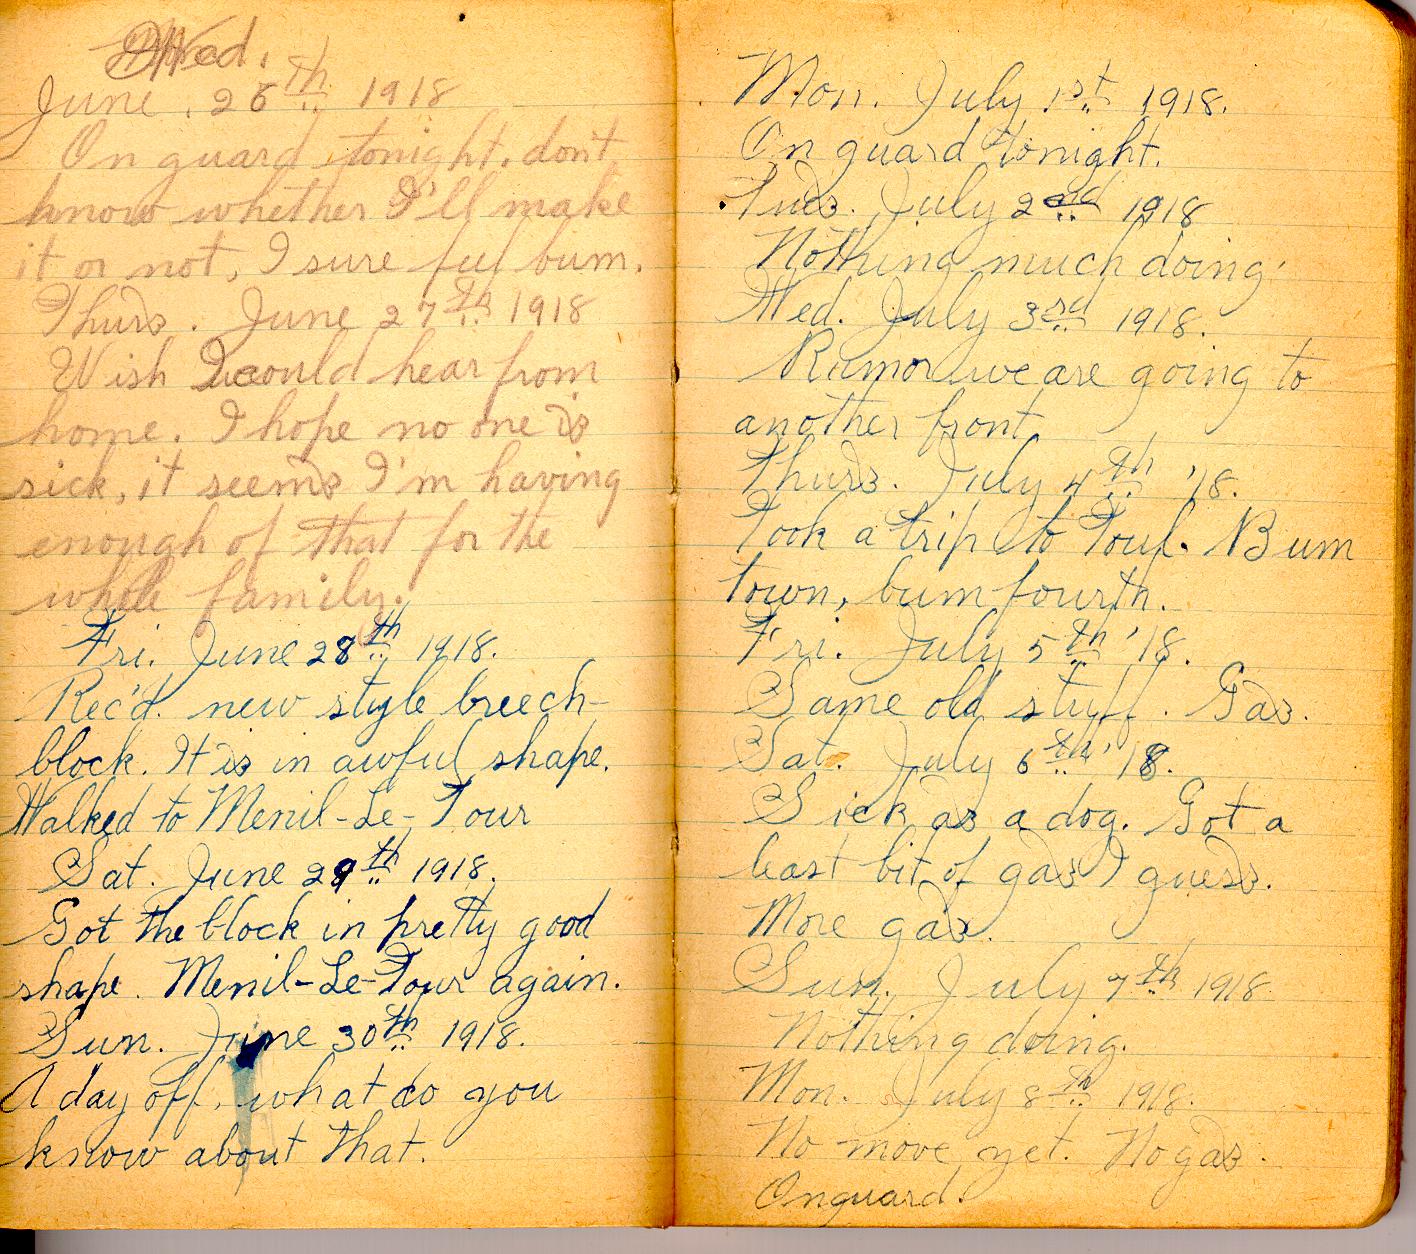 Wed.
June. 26th 1918
On guard tonight. don't
know whether I'll make
it or not, I sure feel bum.
Thurs. June 27th 1918
Wish I could hear from
home. I hope no one is
sick, it seems I'm having
enough of that for the
whole family.
Fri. June 28th 1918.
Rec'd. new style breech-
block. It is in awful shape.
Walked to Menil-Le-Tour
Sat. June 29th 1918.
Got the block in pretty good
shape. Menil-Le-Tour again.
Sun. June 30th 1918.
A day off, what do you
know about that.
Mon. July 1st 1918.
On guard tonight.
Tues. July 2nd 1918
Nothing much doing.
Wed. July 3rd 1918.
Rumor we are going to
another front.
Thurs. July 4th '18.
Took a trip to Toul. Bum
town, bum fourth.
Fri. July 5th '18.
Same old stuff. Gas.
Sat. July 6th '18.
Sick as a dog. Got a
least bit of gas I guess.
More gas.
Sun. July 7th 1918.
Nothing doing.
Mon. July 8th 1918.
No move yet. No gas.
On guard.